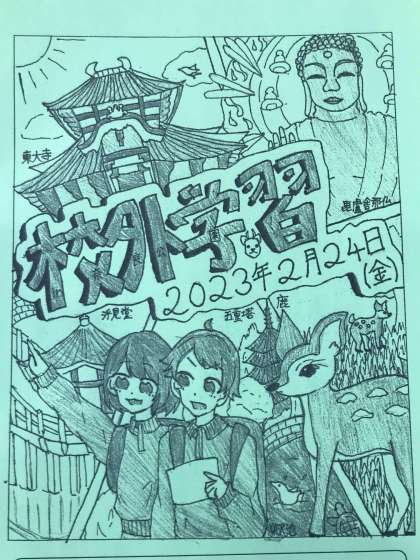 東大寺
毘盧舎那仏
校外学習
2023年2月24日
(金)
浮見堂
五重塔
鹿